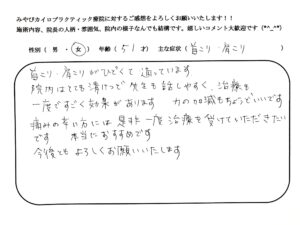 みやびカイロプラクティック療院に対するご感想をよろしくお願いいたします！！
施術内容、院長の人柄・雰囲気、院内の様子なんでも結構です。嬉しいコメント大歓迎です(*^_^*)
性別（ 男 ・ 女 ） 年齢（ 51 才） 主な症状（ 首こり 肩こり ）
首こり・肩こりがひどくて 通っています。
院内はとても清けつで 先生も話しやすく、治療も
一度ですごく効果があります 力の加減もちょうどいいです
痛みの辛い方には 是非一度 治療を受けていただきたい
です 本当におすすめです
今後とも よろしくお願いいたします